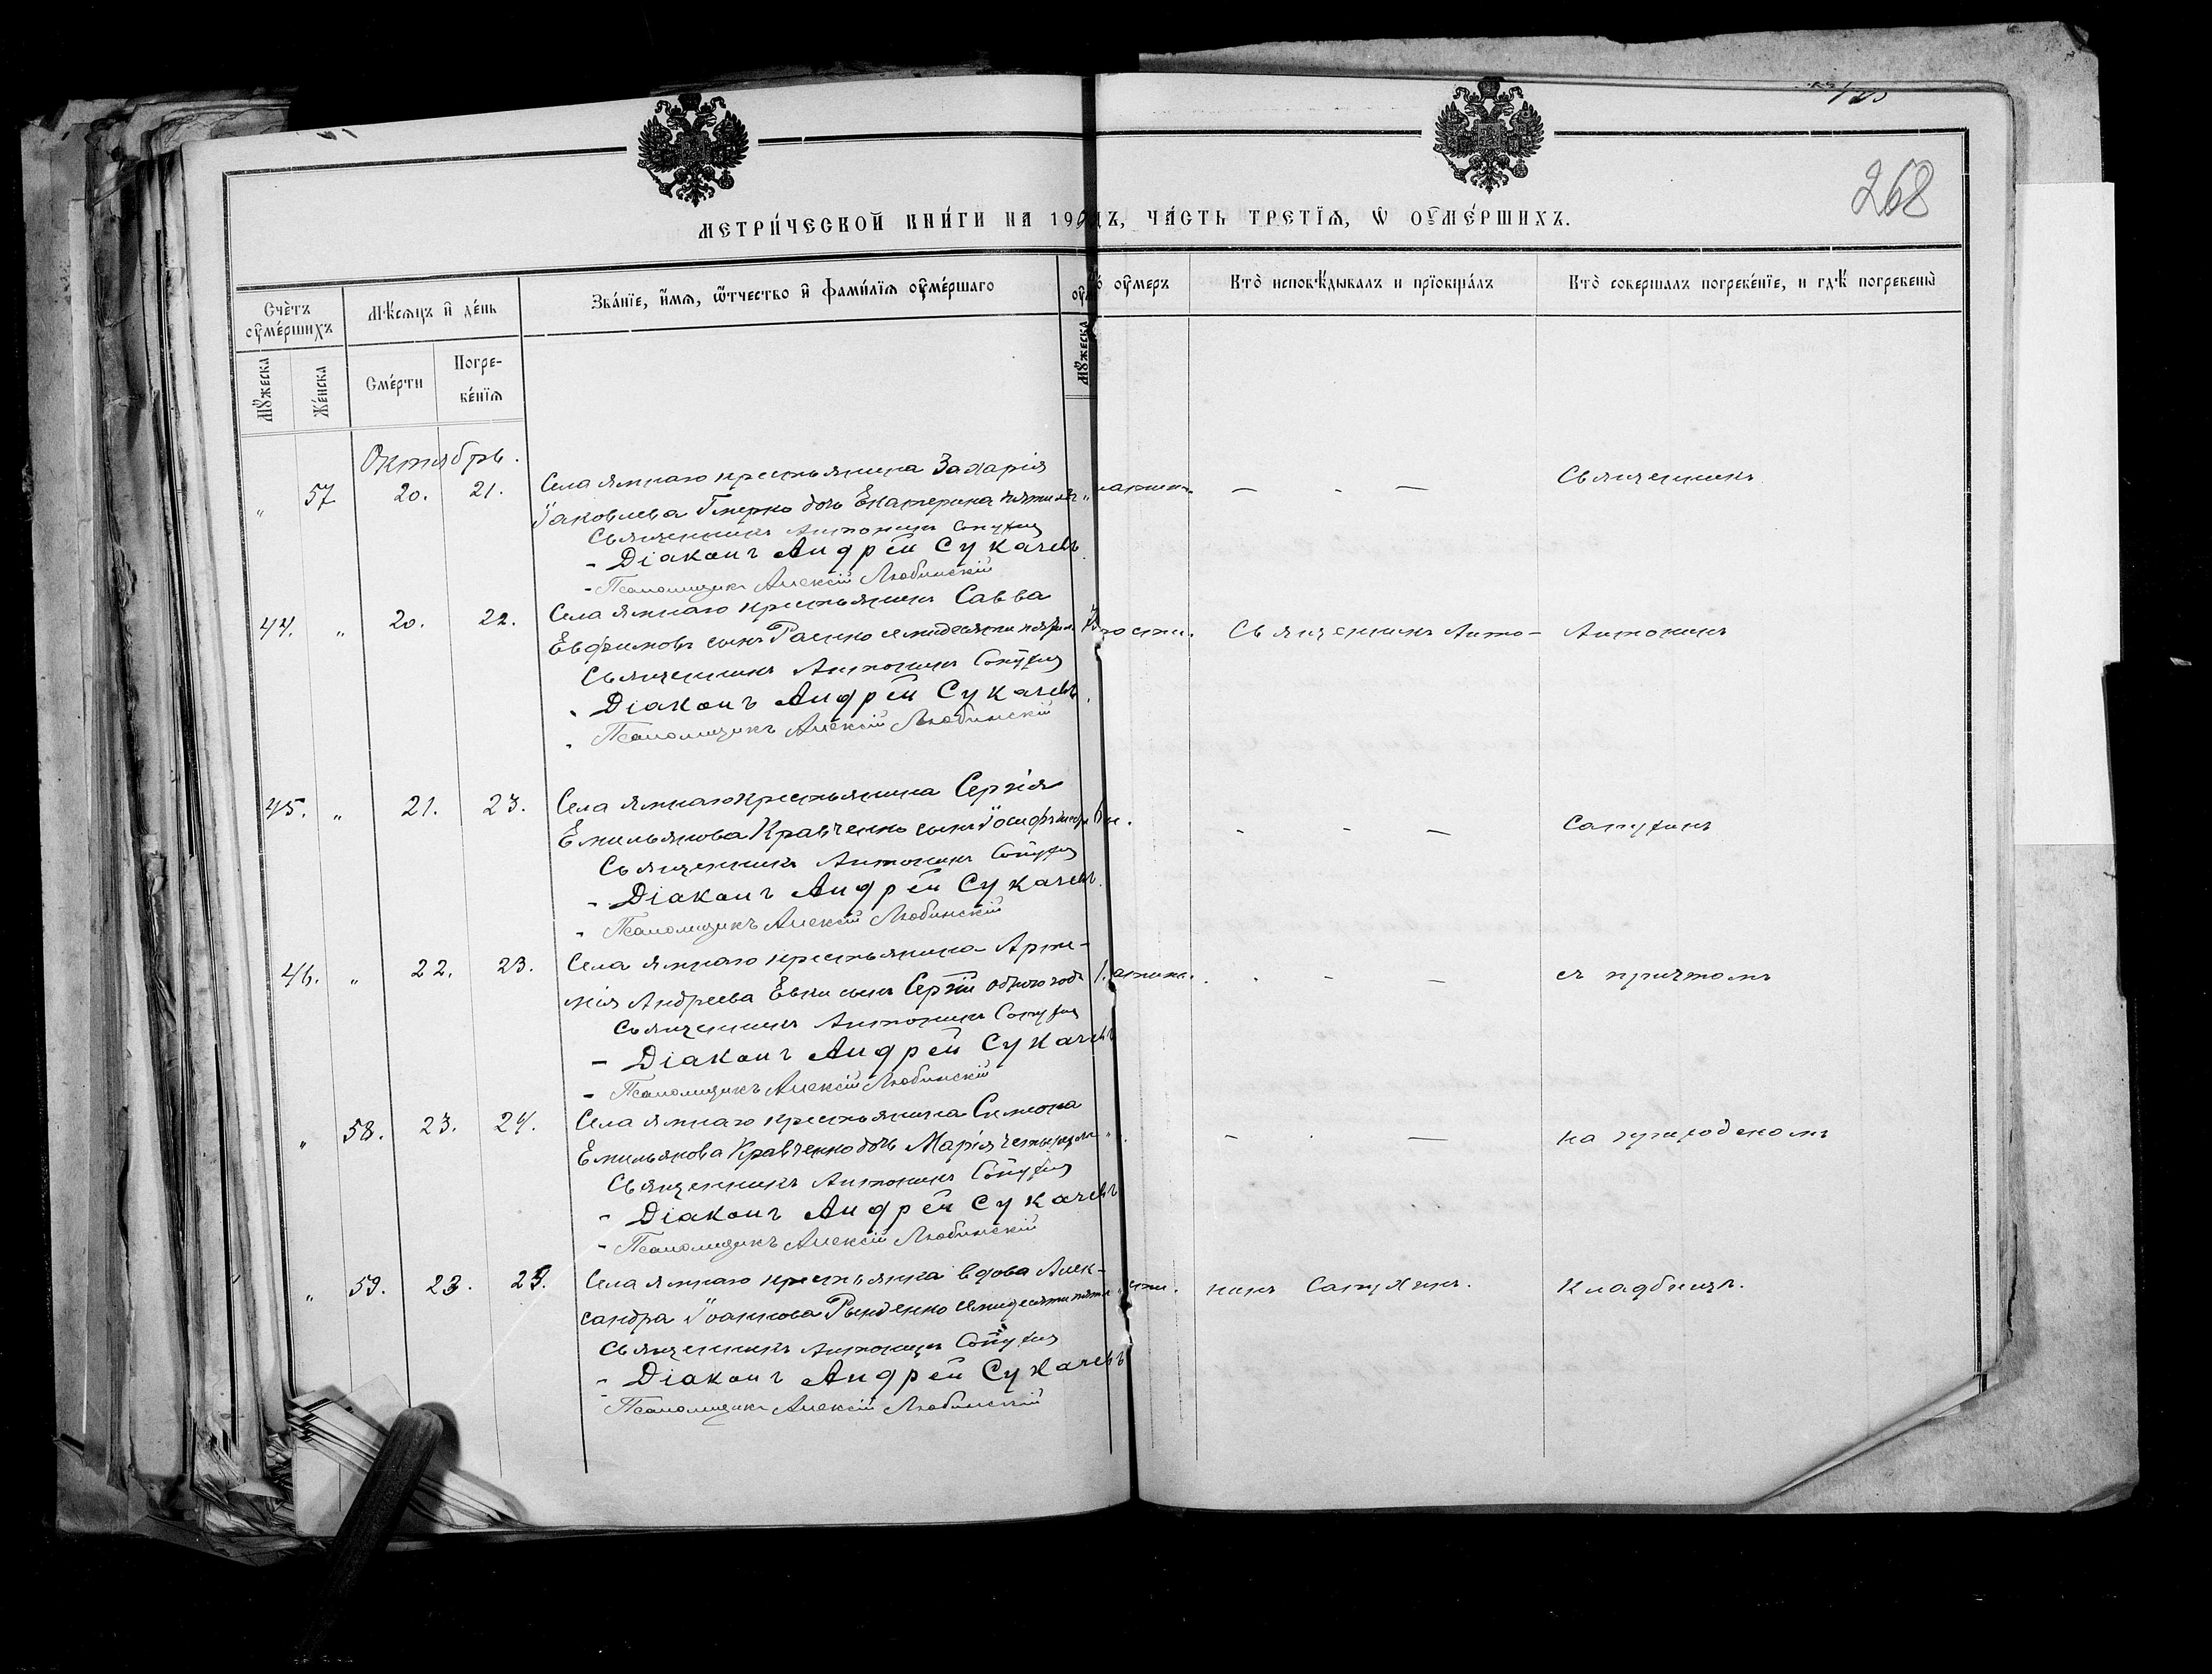 268
МЕТРИ́ЧЕСКОЙ КНИ́ГИ НА 190 ДЪ, ЧА́СТЬ ТРЕТЇѦ, Ѡ ОУМЕ́РШИХЪ.
Счѐтъ оумéршихъ
Мѣ́сяцъ и҆ де́нь
Зва́нїе, и҆́мѧ, ѻ҆́тчество и҆ фами́лїѧ оумéршаго
оумеръ
Кто̀ исповѣ́дывалъ и прїѻбща́лъ
Кто̀ соверша́лъ погребе́нїе, и гдѣ̀ погребены̀
Мꙋ́жеска
Же́нска
Сме́рти
Погре-
бе́нїѧ
Мꙋ́жеска
Октябрь.
" 57 20. 21. Села Ямнаго крестьянина Захарія
Іаковлева дочь Екатерина
Священникъ Антонинъ Сапухинъ
- Діаконъ Андрей Сукачевъ
- Псаломщикъ Алексій Любинскій
— - — Священникъ
44. " 20. 22. Села Ямнаго крестьянинъ Савва
Евфимовъ сынъ
Священникъ Антонинъ Сапухинъ
- Діаконъ Андрей Сукачевъ
- Псаломщикъ Алексій Любинскій
Священникъ Анто- Антонинъ
45. " 21. 23. Села Ямнаго крестьянина Сергія
Емильянова Кравченко сынъ Іосифъ
Священникъ Антонинъ Сапухинъ
- Діаконъ Андрей Сукачевъ
- Псаломщикъ Алексій Любинскій
- - — Сапухинъ
46. " 22. 23. Села Ямнаго крестьянина Арте-
мія Андреева сынъ Сергій одного года 1.
Священникъ Антонинъ Сапухинъ
- Діаконъ Андрей Сукачевъ
- Псаломщикъ Алексій Любинскій
- - — съ причтомъ
" 58. 23. 24. Села Ямнаго крестьянина Симеона
Емильянова Кравченко дочь Марія
Священникъ Антонинъ Сапухинъ
- Діаконъ Андрей Сукачевъ
- Псаломщикъ Алексій Любинскій
— - — на приходскомъ
" 59. 23. 25. Села Ямнаго крестьянка вдова Алек-
сандра Іоаннова
Священникъ Антонинъ Сапухинъ
- Діаконъ Андрей Сукачевъ
- Псаломщикъ Алексій Любинскій
нинъ Сапухинъ. кладбищѣ.